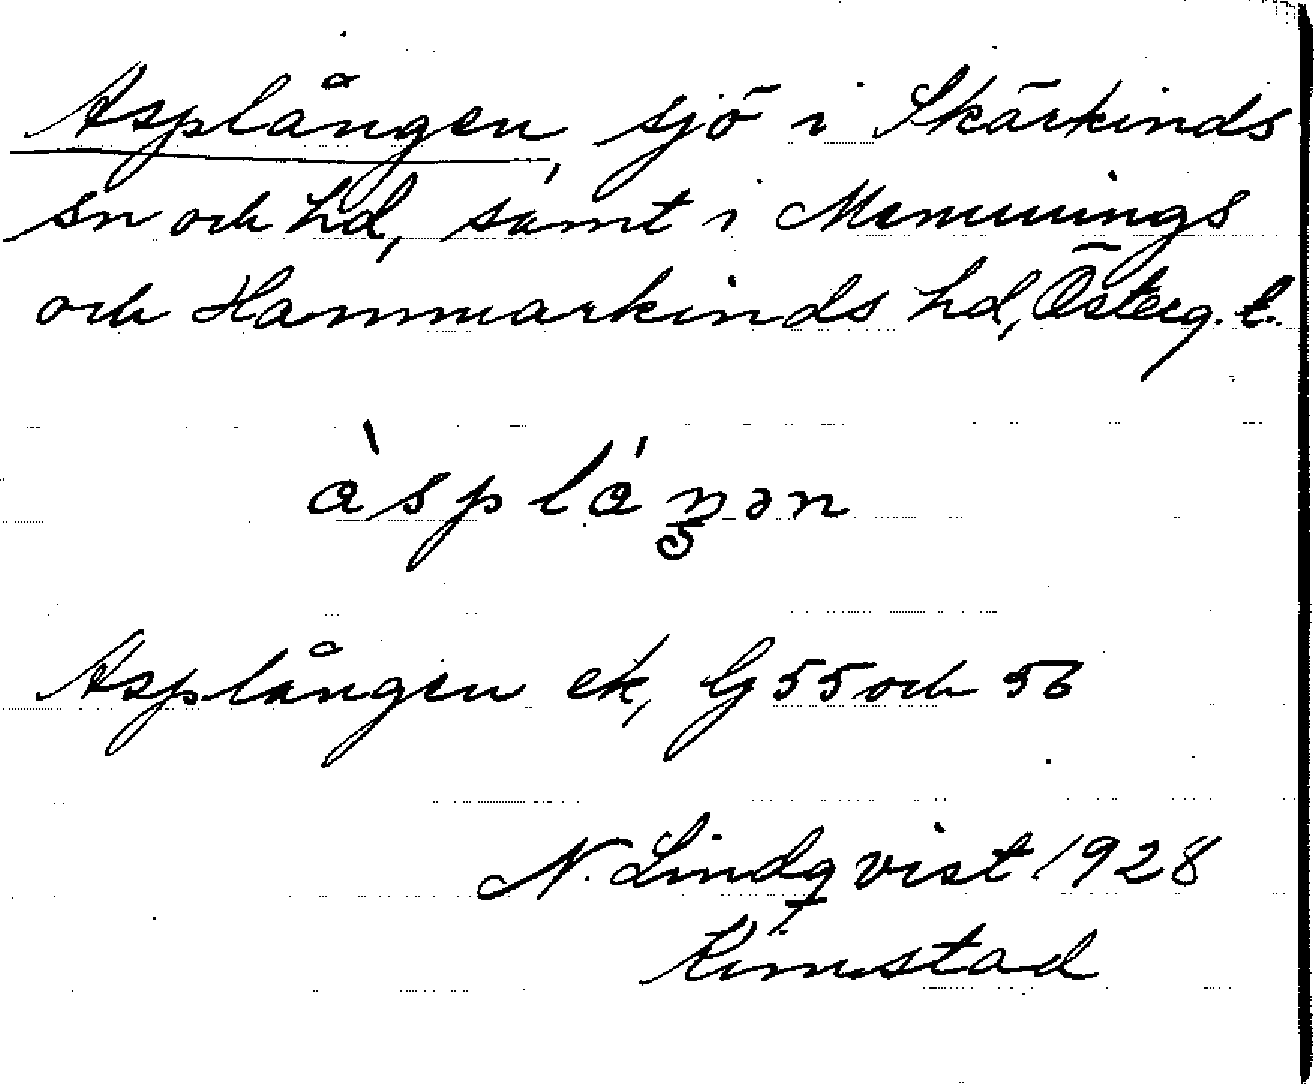 Asplången, sjö i Skärkinds
sn och hd, samt i Memmings
och Hammarkinds hd, Österg. l.
àsplá ŋən
Asplången ek, G 55 och 56
N. Lindqvist 1928
Kimstad